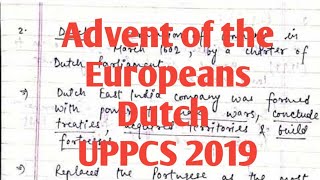 Advent of the
Europeans
Dutch
UPPCS 2019
2.
March 1602, by a charter of
Dutch Parliament
Dutch East India company was formed
with wars, conclude
treaties, territories & build
Replaced the Portugese as the most